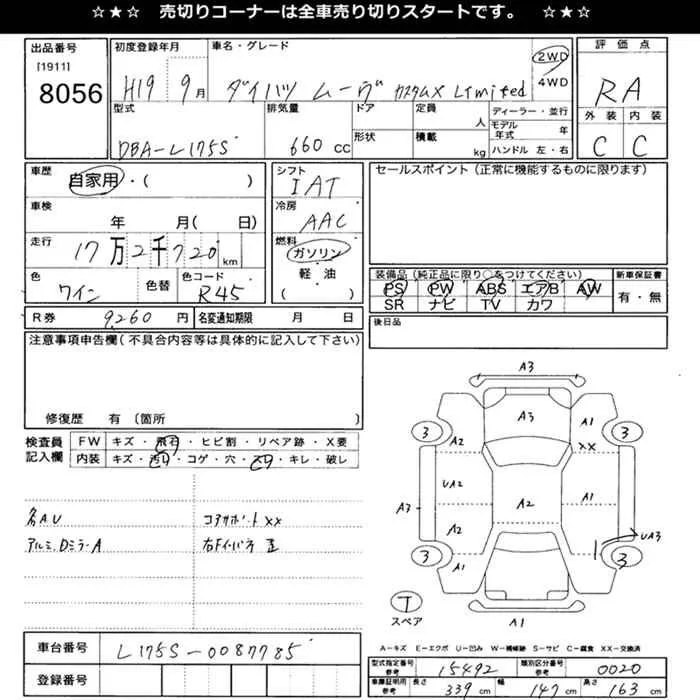 ☆★☆ 売切りコーナーは全車売り切りスタートです。 ☆★☆
出品番号
[1911]
8056
初度登録年月
H19 9月
車名・グレード
ダイハツ ムーヴ カスタムX Limited
2WD
4WD
評価点
RA
外装 内装
C C
型式
DBA-L175S
排気量
660cc
ドア
形状
定員 人
積載 kg
ディーラー・並行
モデル年式 年
ハンドル 左・右
車歴
自家用・( )
車検
年 月( 日)
走行
17万2千720km
色
ワイン
色替
色コード
R45
シフト
IAT
冷房
AAC
燃料
ガソリン
軽油
( )
セールスポイント(正常に機能するものに限ります)
装備品(純正品に限り○をつけてください)
PS PW ABS エアB AW
SR ナビ TV カワ
新車保証書
有・無
後日品
R券 9,260円
名変通知期限 月 日
注意事項申告欄(不具合内容等は具体的に記入して下さい)
修復歴 有(箇所
検査員記入欄
FW キズ・飛石・ヒビ割・リペア跡・X要
内装 キズ・汚れ・コゲ・穴・ ・キレ・破レ
各AU
コアサポートXX
アルミ、DミラーA
右Fインパネ 歪
A3
A3
3
A2
A1
3
XX
UA2
A3
A2
A1
A2
UA3
3
A1
3
T
スペア
A1
A-キズ E-エクボ U-凹み W-補修跡 S-サビ C-腐食 XX-交換済
車台番号
L175S-0087785
登録番号
型式指定番号 参考 15492
類別区分番号 参考 0020
車庫証明用 参考 長さ 339cm 幅 147cm 高さ 163cm